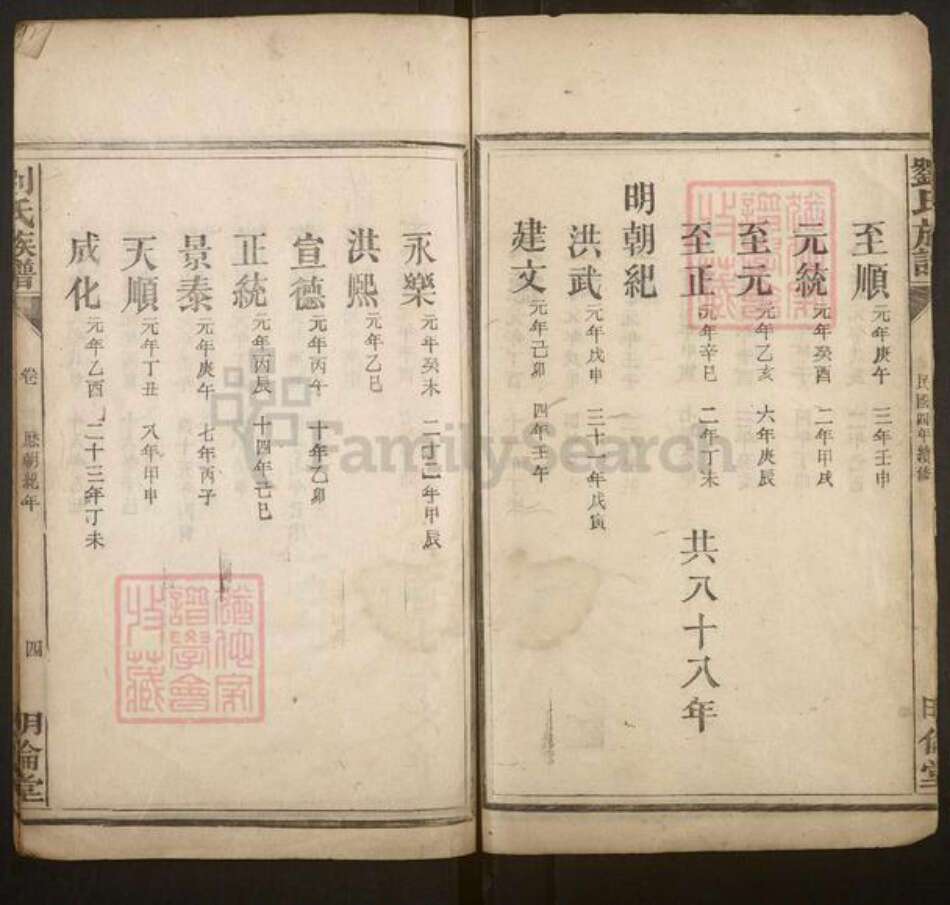 至順 元年庚午 三年壬申
元統 元年癸酉 二年甲戌
至元 元年乙亥 六年庚辰
至正 元年辛巳 二年丁未 共八十八年
明朝紀
洪武 元年戊申 三十一年戊寅
建文 元年己卯 四年壬午
永樂 元年癸未 二十二年甲辰
洪熙 元年乙巳
宣德 元年丙午 十年乙卯
正統 元年丙辰 十四年己巳
景泰 元年庚午 七年丙子
天順 元年丁丑 八年甲申
成化 元年乙酉 二十三年丁未
劉氏族譜 民國四年續修
劉氏族譜 卷 歷朝紀年 四 明倫堂
收藏
譜學會
FamilySearch